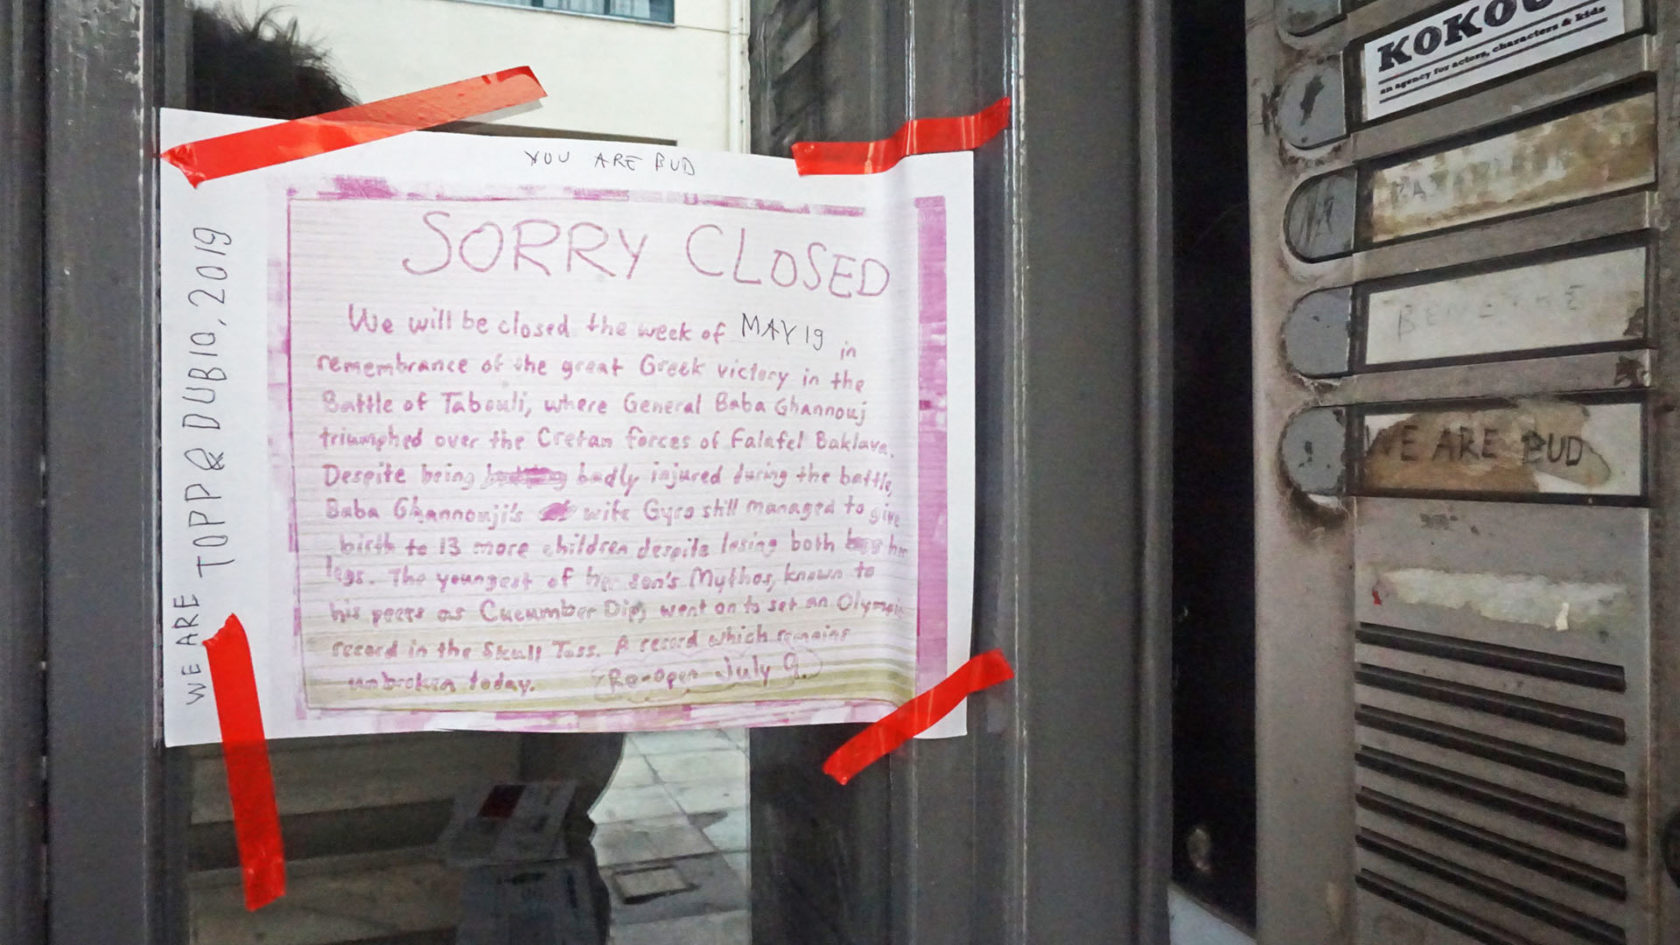 YOU ARE BUD
SORRY CLOSED
We will be closed the week of MAY 19 in
remembrance of the great Greek victory in the
Battle of Tabouli, where General Baba Ghannouj
triumphed over the Cretan forces of Falafel Baklava.
Despite being badly injured during the battle,
Baba Ghannouji's wife Gyro still managed to give
birth to 13 more children despite losing both her
legs. The youngest of her son's Mythos, known to
his peers as Cucumber Dip, went on to set an Olympic
record in the Skull Toss. A record which remains
unbroken today. Re-open July 9.
WE ARE TOPP & DUBIO, 2019
KOKO
an agency for actors, characters & kids
WE ARE BUD